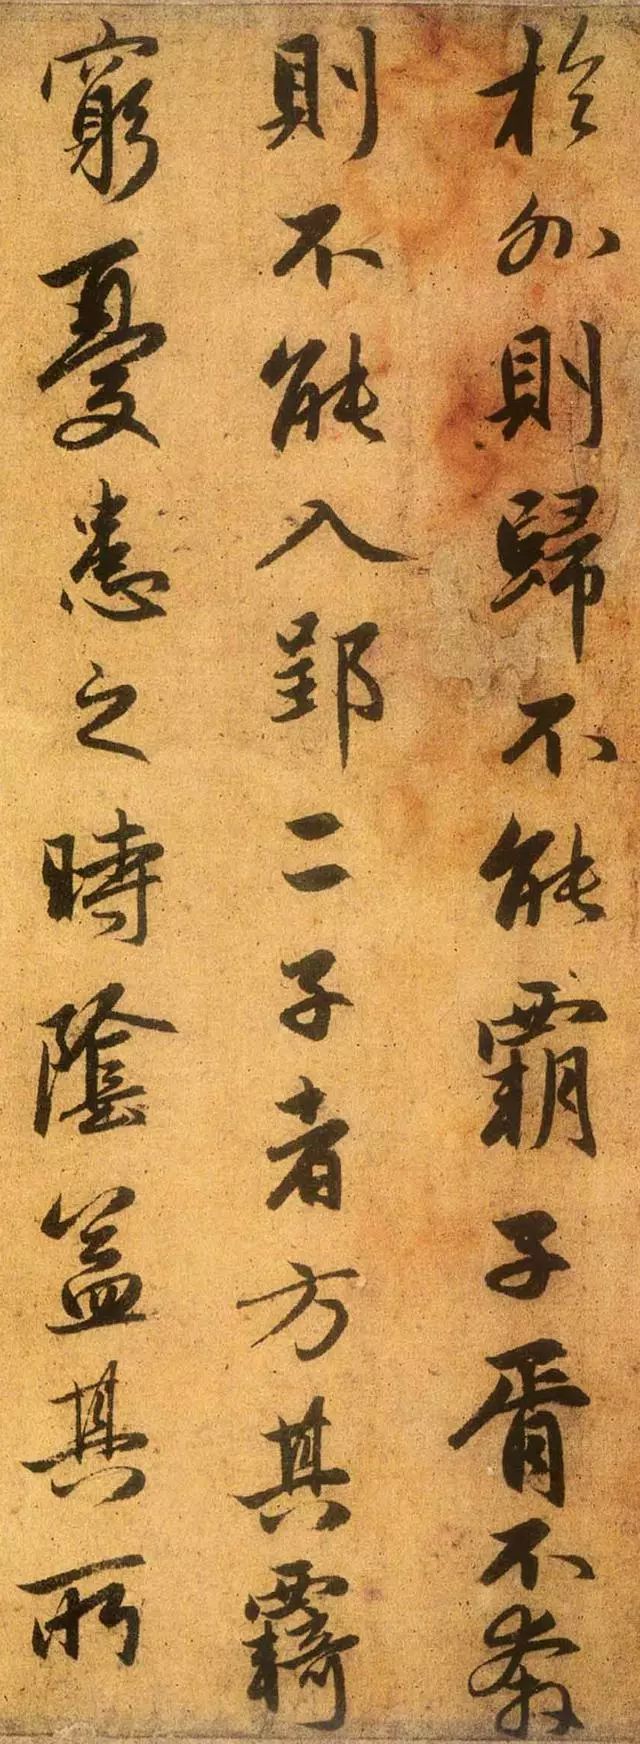 於外則歸不能覇子胥不奔
則不能入郢二子者方其覉
窮憂患之時隂益其所